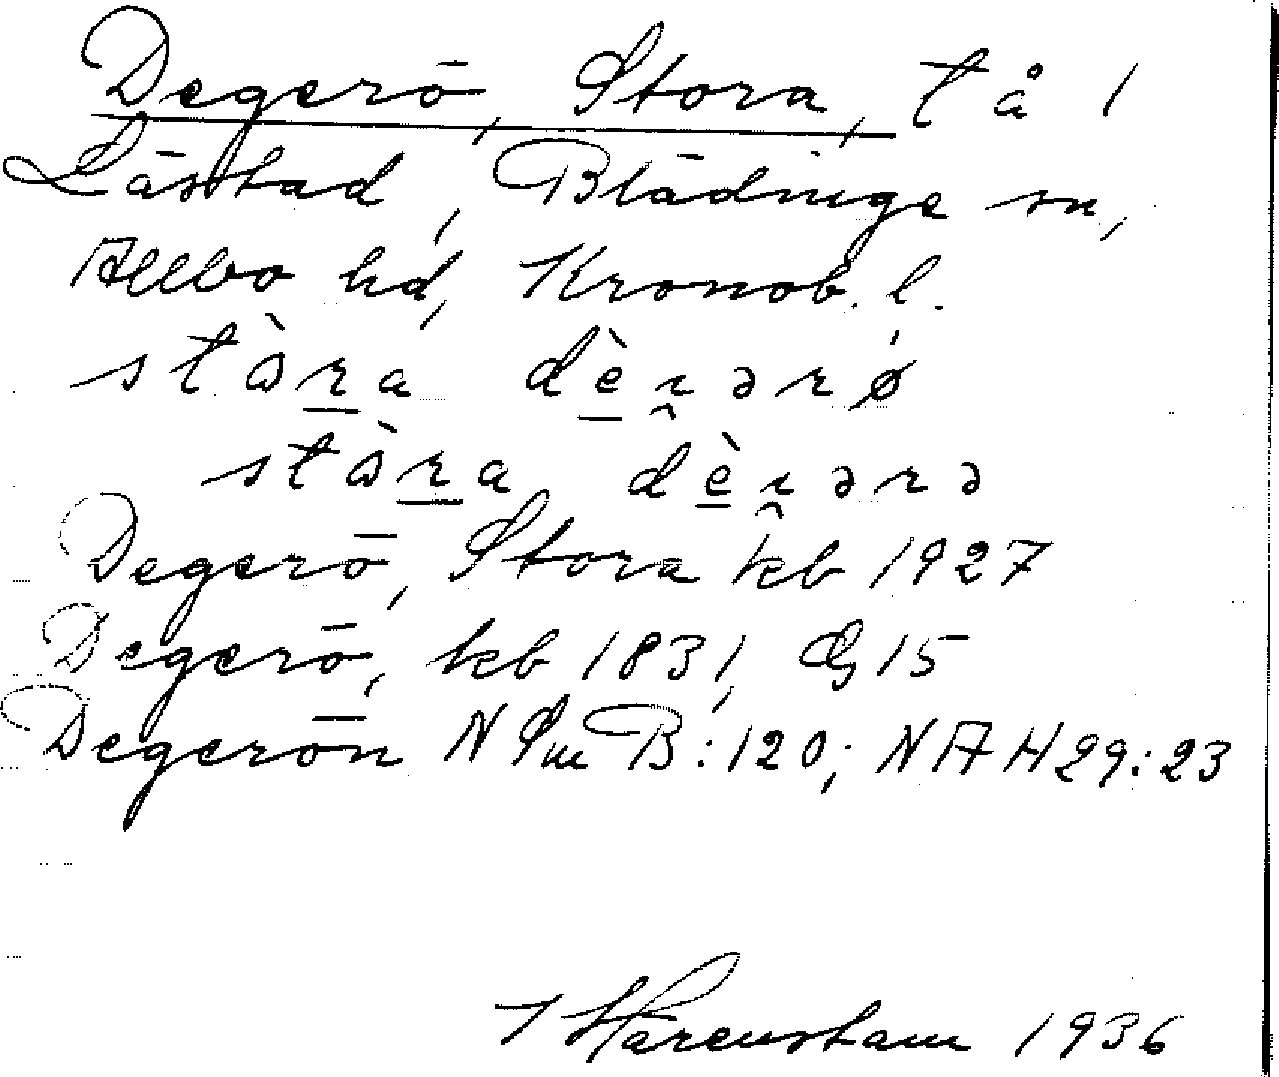 Degerö, Stora, t å 1
Låstad, Blädinge sn,
Allbo hd, Kronob. l.
stòra dèi̯ərø
stòra dèi̯ərə
Degerö, Stora kb 1927
Degerö, kb 1831, Gs 15
Degerön N Sm B:120; NAH29:23
1936